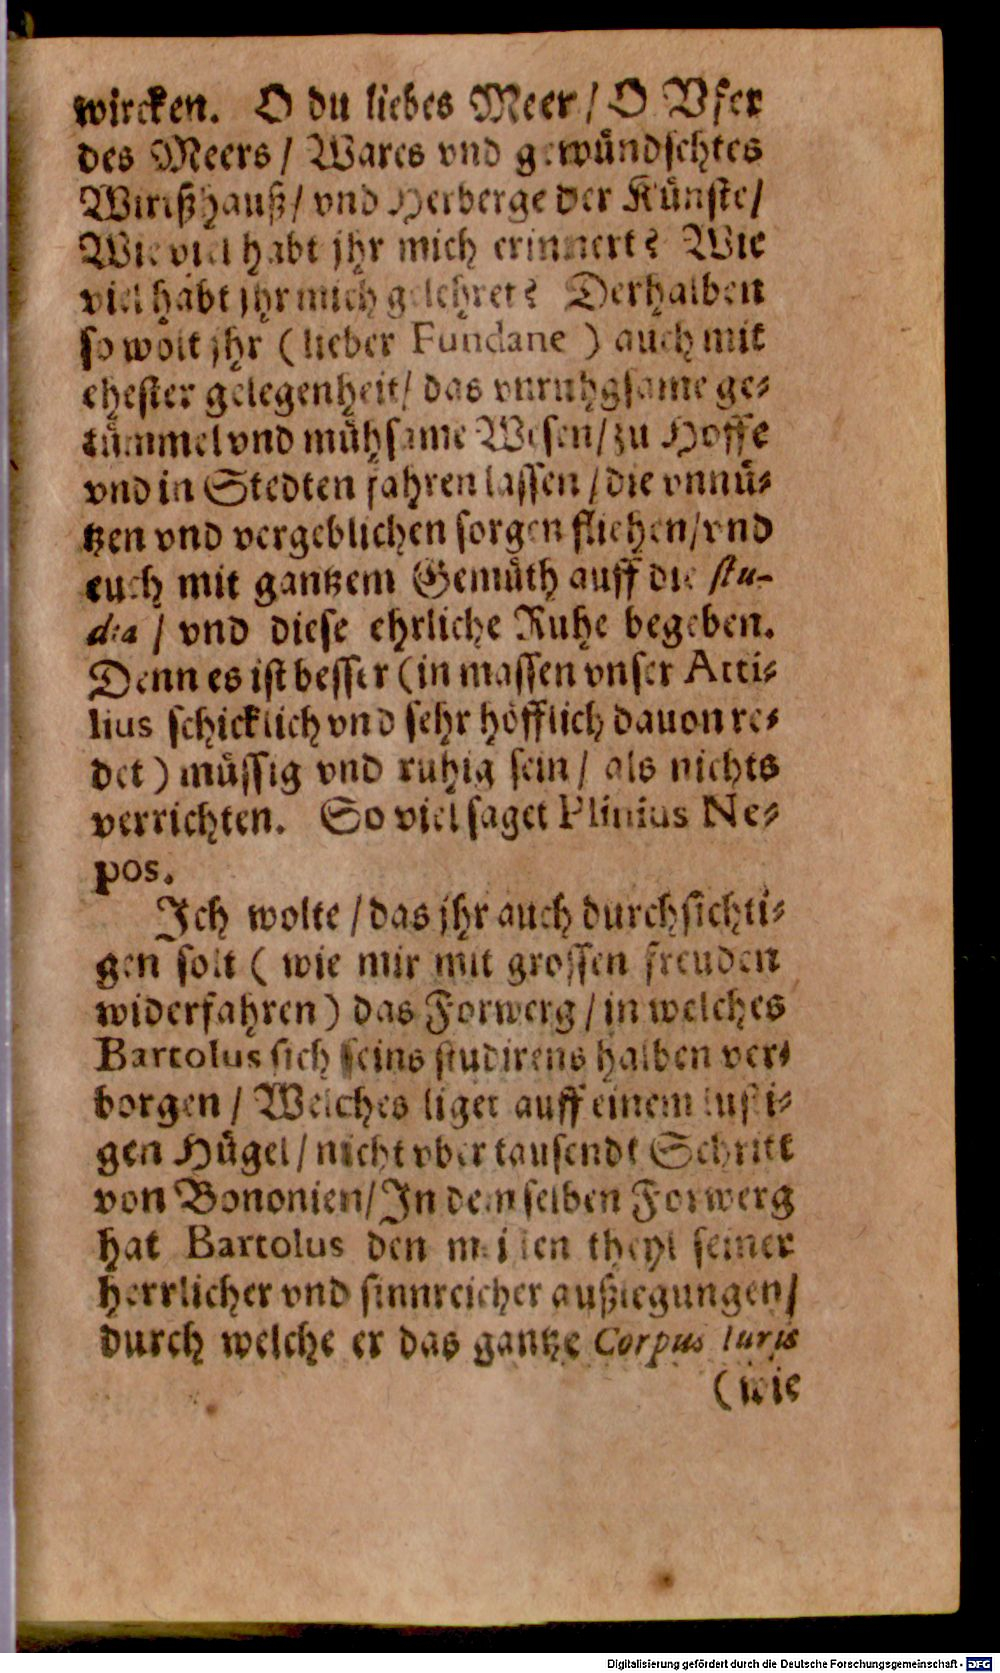 wircken. O du liebes Meer / O Vfer
des Meers / Wares vnd gewündschtes
Wirtßhauß / vnd Herberge der Künste /
Wie viel habt jhr mich erinnert? Wie
viel habt jhr mich gelehret? Derhalben
so wolt jhr ( lieber Fundane ) auch mit
ehester gelegenheit / das vnruhgsame ge-
tümmel vnd mühsame Wesen / zu Hoffe
vnd in Stedten fahren lassen / die vnnü-
tzen vnd vergeblichen sorgen fliehen / vnd
euch mit gantzem Gemüth auff die stu-
dia / vnd diese ehrliche Ruhe begeben.
Denn es ist besser (in massen vnser Atti-
lius schicklich vnd sehr höfflich dauon re-
det) müssig vnd ruhig sein / als nichts
verrichten. So viel saget Plinius Ne-
pos.
Ich wolte / das jhr auch durchsichti-
gen solt ( wie mir mit grossen freuden
widerfahren) das Forwerg / in welches
Bartolus sich seins studirens halben ver-
borgen / Welches liget auff einem lusti-
gen Hügel / nicht vber tausendt Schritt
von Bononien / In demselben Forwerg
hat Bartolus den meisten theyl seiner
herrlicher vnd sinnreicher außlegungen /
durch welche er das gantze Corpus Iuris
(wie
Digitalisierung gefördert durch die Deutsche Forschungsgemeinschaft - DFG